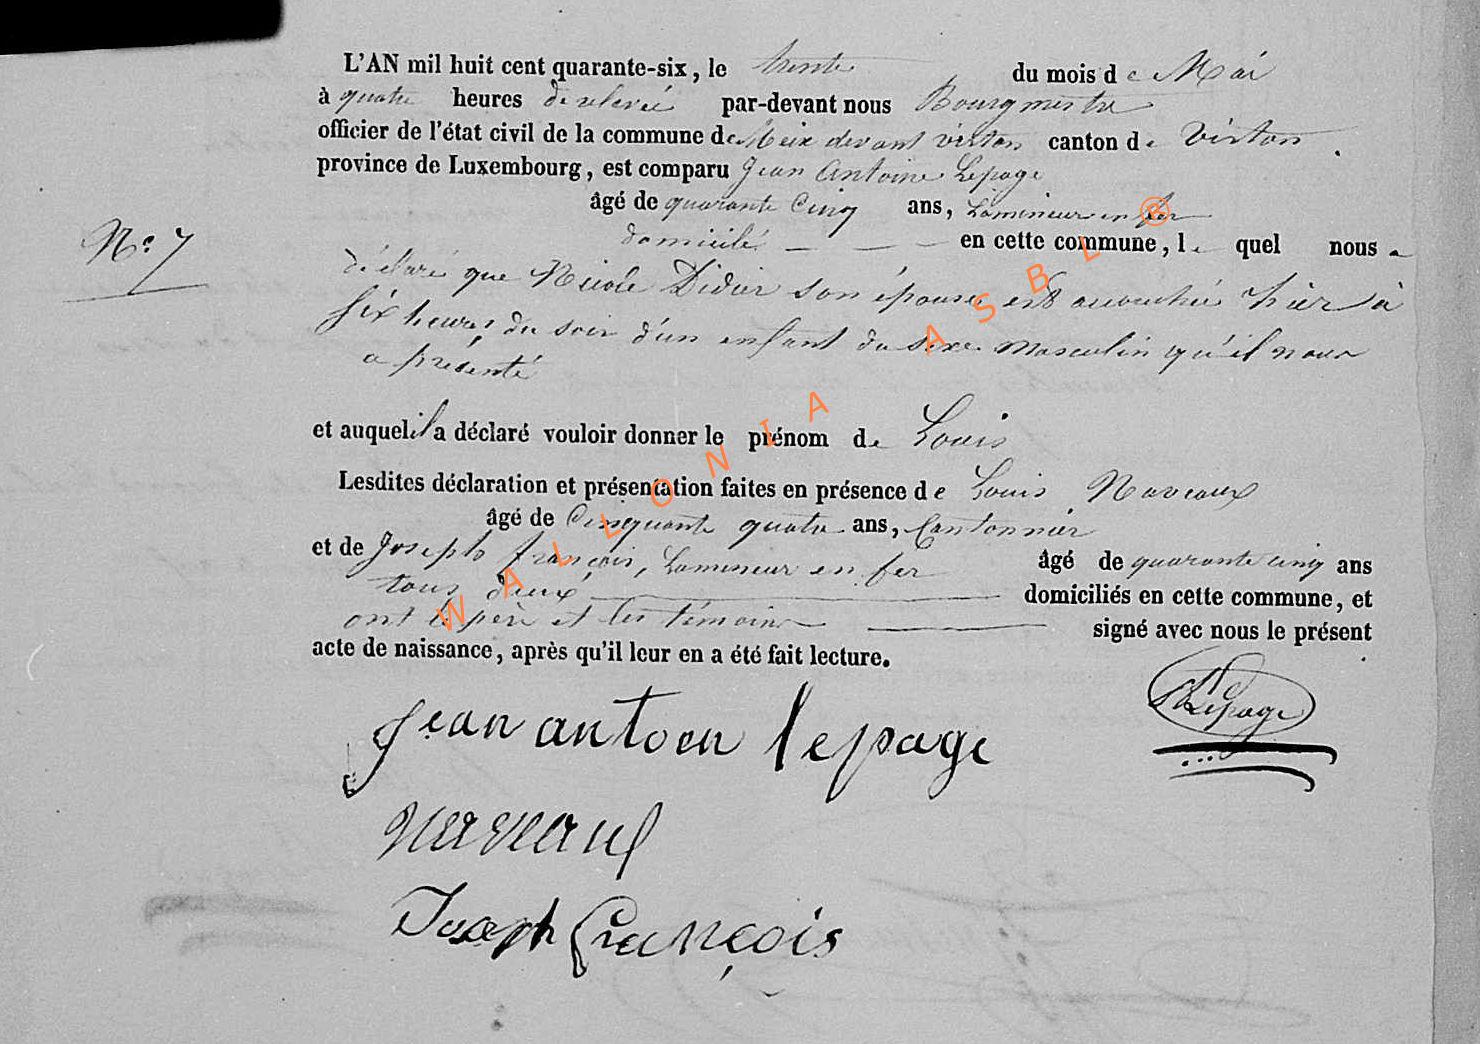 L'AN mil huit cent quarante-six, le trente du mois de Mai
à quatre heures de relevée par-devant nous Bourgmestre
officier de l'état civil de la commune de Meix devant virton canton de Virton.
province de Luxembourg, est comparu Jean Antoine Lepage
âgé de quarante Cinq ans, Lamineur en fer
domicilié en cette commune, le quel nous a
N.o 7
déclaré que Nicole Didier son épouse est accouchée hièr à
six heures du soir d'un enfant du sexe masculin qu'il nous
a présenté
et auquel il a déclaré vouloir donner le prénom de Louis
Lesdites déclaration et présentation faites en présence de Louis Naveaux
âgé de Cinquante quatre ans, Cantonnier
et de Joseph françois, Lamineur en fer âgé de quarante cinq ans
tous deux domiciliés en cette commune, et
ont le père et les témoins signé avec nous le présent
acte de naissance, après qu'il leur en a été fait lecture.
Lepage
Jean antoen lepage
naveaux
Joseph François
WALLONIA ASBL ®